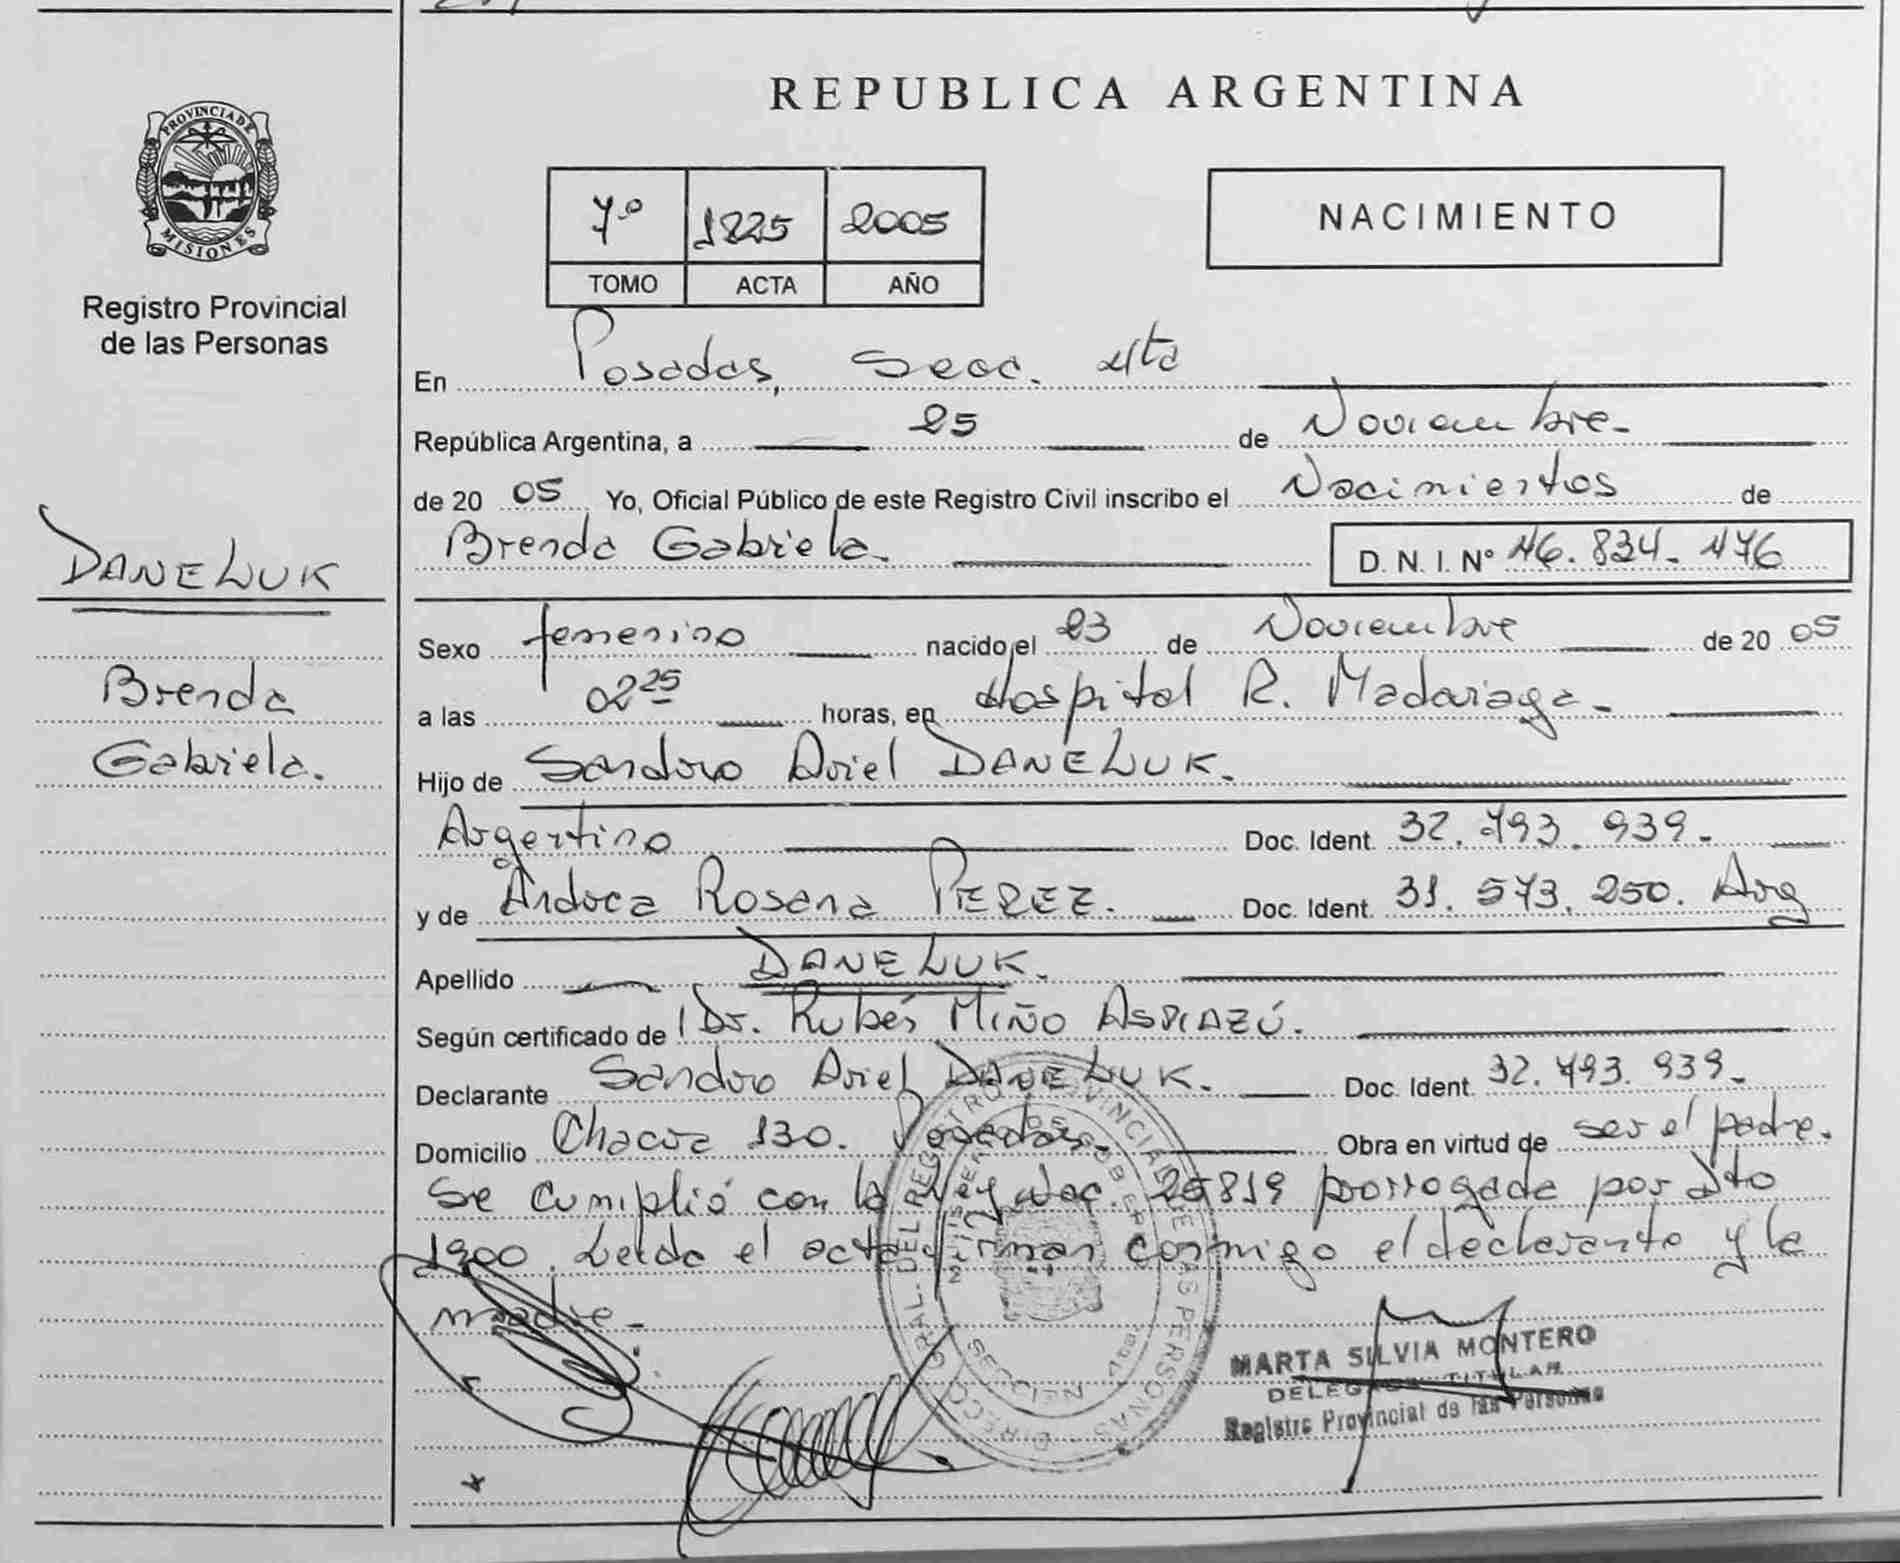 PROVINCIA DE
MISIONES
Registro Provincial
de las Personas
DANELUK
Brenda
Gabriela.
REPUBLICA ARGENTINA
7º 1225 2005
TOMO ACTA AÑO
NACIMIENTO
En Posadas, Secc. 4ta
República Argentina, a 25 de Noviembre.
de 20 05 Yo, Oficial Público de este Registro Civil inscribo el Nacimientos de
Brenda Gabriela. D. N. I. Nº 46.834.476
Sexo femenino nacido el 23 de Noviembre de 20 05
a las 02 25 horas, en Hospital R. Madariaga.
Hijo de Sandro Ariel DANELUK.
Argentino Doc. Ident. 32.793.939.
y de Andrea Rosana PEREZ. Doc. Ident. 31.573.250. Arg
Apellido DANELUK.
Según certificado de Dr. Rubén MIÑO ASPIAZÚ.
Declarante Sandro Ariel DANELUK. Doc. Ident. 32.793.939.
Domicilio Chacra 130. Posadas. Obra en virtud de ser el padre.
Se cumplió con la Ley Nac. 25819 prorrogada por Dto
1900. Leída el acta firman conmigo el declarante y la
madre.
MARTA SILVIA MONTERO
TITULAR
Registro Provincial de las Personas